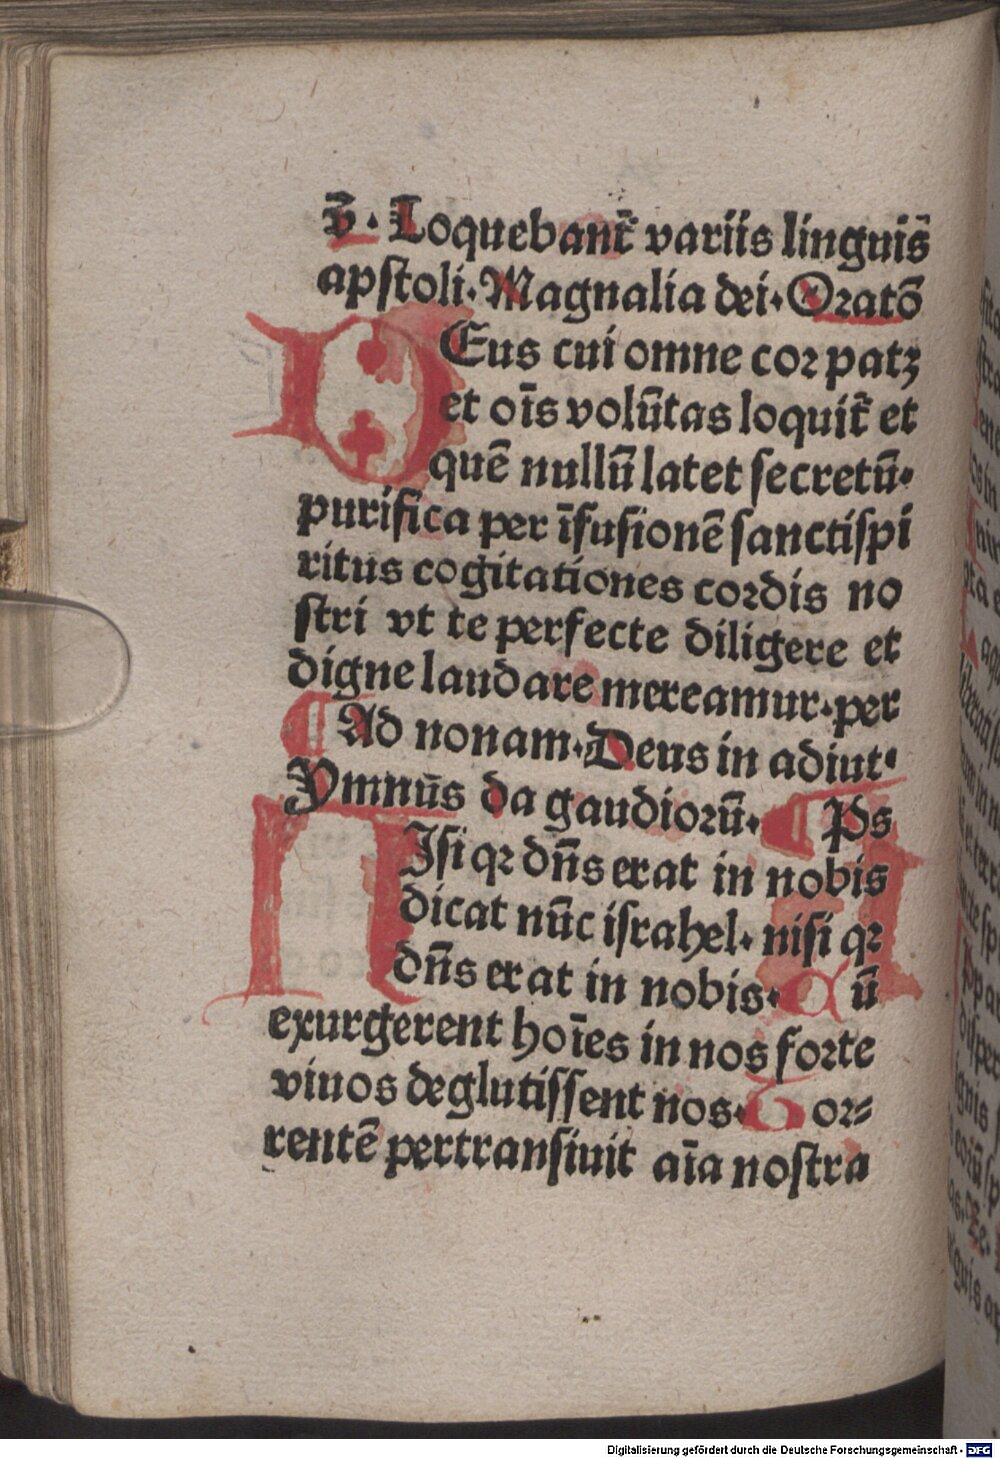 v̄. Loquebant᷑ variis linguis̄
apstoli. Magnalia dei. Oratō
DEus cui omne cor patꝫ
et oīs volūtas loquit᷑ et
quē nullū latet secretū.
purifica per īfusionē sanctispi
ritus cogitationes cordis no
stri vt te perfecte diligere et
digne laudare mereamur. per
¶ Ad nonam. Deus in adiut.
Ymnūs da gaudiorū. ¶ Ps
NIsi qꝛ dn̄s erat in nobis
dicat nūc israhel. nisi qꝛ
dn̄s erat in nobis. Cū
exurgerent hoīes in nos forte
viuos deglutissent nos. Tor⸗
rentē pertransiuit aīa nostra
Digitalisierung gefördert durch die Deutsche Forschungsgemeinschaft - DFG